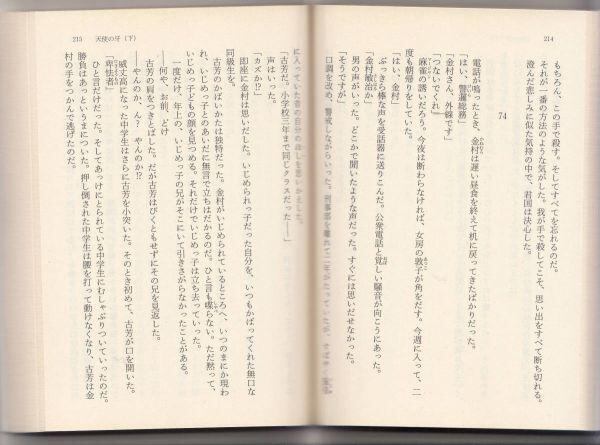 214
もちろん、この手で殺す。そしてすべてを忘れるのだ。
それが一番の方法のような気がした。我が手で殺してこそ、思い出をすべて断ち切れる。
澄んだ悲しみに似た気持の中で、君国は決心した。
74
電話が鳴ったとき、金村は遅い昼食を終えて机に戻ってきたばかりだった。
「はい、警邏総務」
「金村さん、外線です」
「つないでくれ」
麻雀の誘いだろう。今夜は断わらなければ、女房の敦子が角をだす。今週に入って、二
度も朝帰りをしていた。
「はい、金村」
ぶっきら棒な声を受話器に送りこんだ。公衆電話と覚しい騒音が向こうにあった。
「金村敏治か」
男の声がいった。どこかで聞いたような声だった。すぐには思いだせなかった。
「そうですが」
口調を改め、警戒しながらいった。刑事部を離れて二年がたっていたが、
215 天使の牙（下）
「古芳だ。小学校三年まで同じクラスだった――」
声はいった。
「カズか!?」
即座に金村は思いだした。いじめられっ子だった自分を、いつもかばってくれた無口な
同級生を。
古芳のかばいかたは独特だった。金村がいじめられているところへ、いつのまにか現わ
れ、いじめっ子とのあいだに無言で立ちはだかるのだ。ひと言も喋らない。ただ黙って、
いじめっ子どもの顔を見つめる。それだけでいじめっ子は立ち去っていった。
一度だけ、年上の、いじめっ子の兄がそこにいて引きさがらなかったことがある。
――何や、お前、どけ
古芳の肩をつきとばした。だが古芳はびくともせずにその兄を見返した。
――やんのか、ん？　やんのか!?
威丈高になった中学生はさらに古芳を小突いた。そのとき初めて、古芳が口を開いた。
「卑怯者」
ひと言だけだった。そしてあっけにとられている中学生にむしゃぶりついていったのだ。
勝負はあっというまについた。押し倒された中学生は腰を打って動けなくなり、古芳は金
村の手をつかんで逃げたのだ。